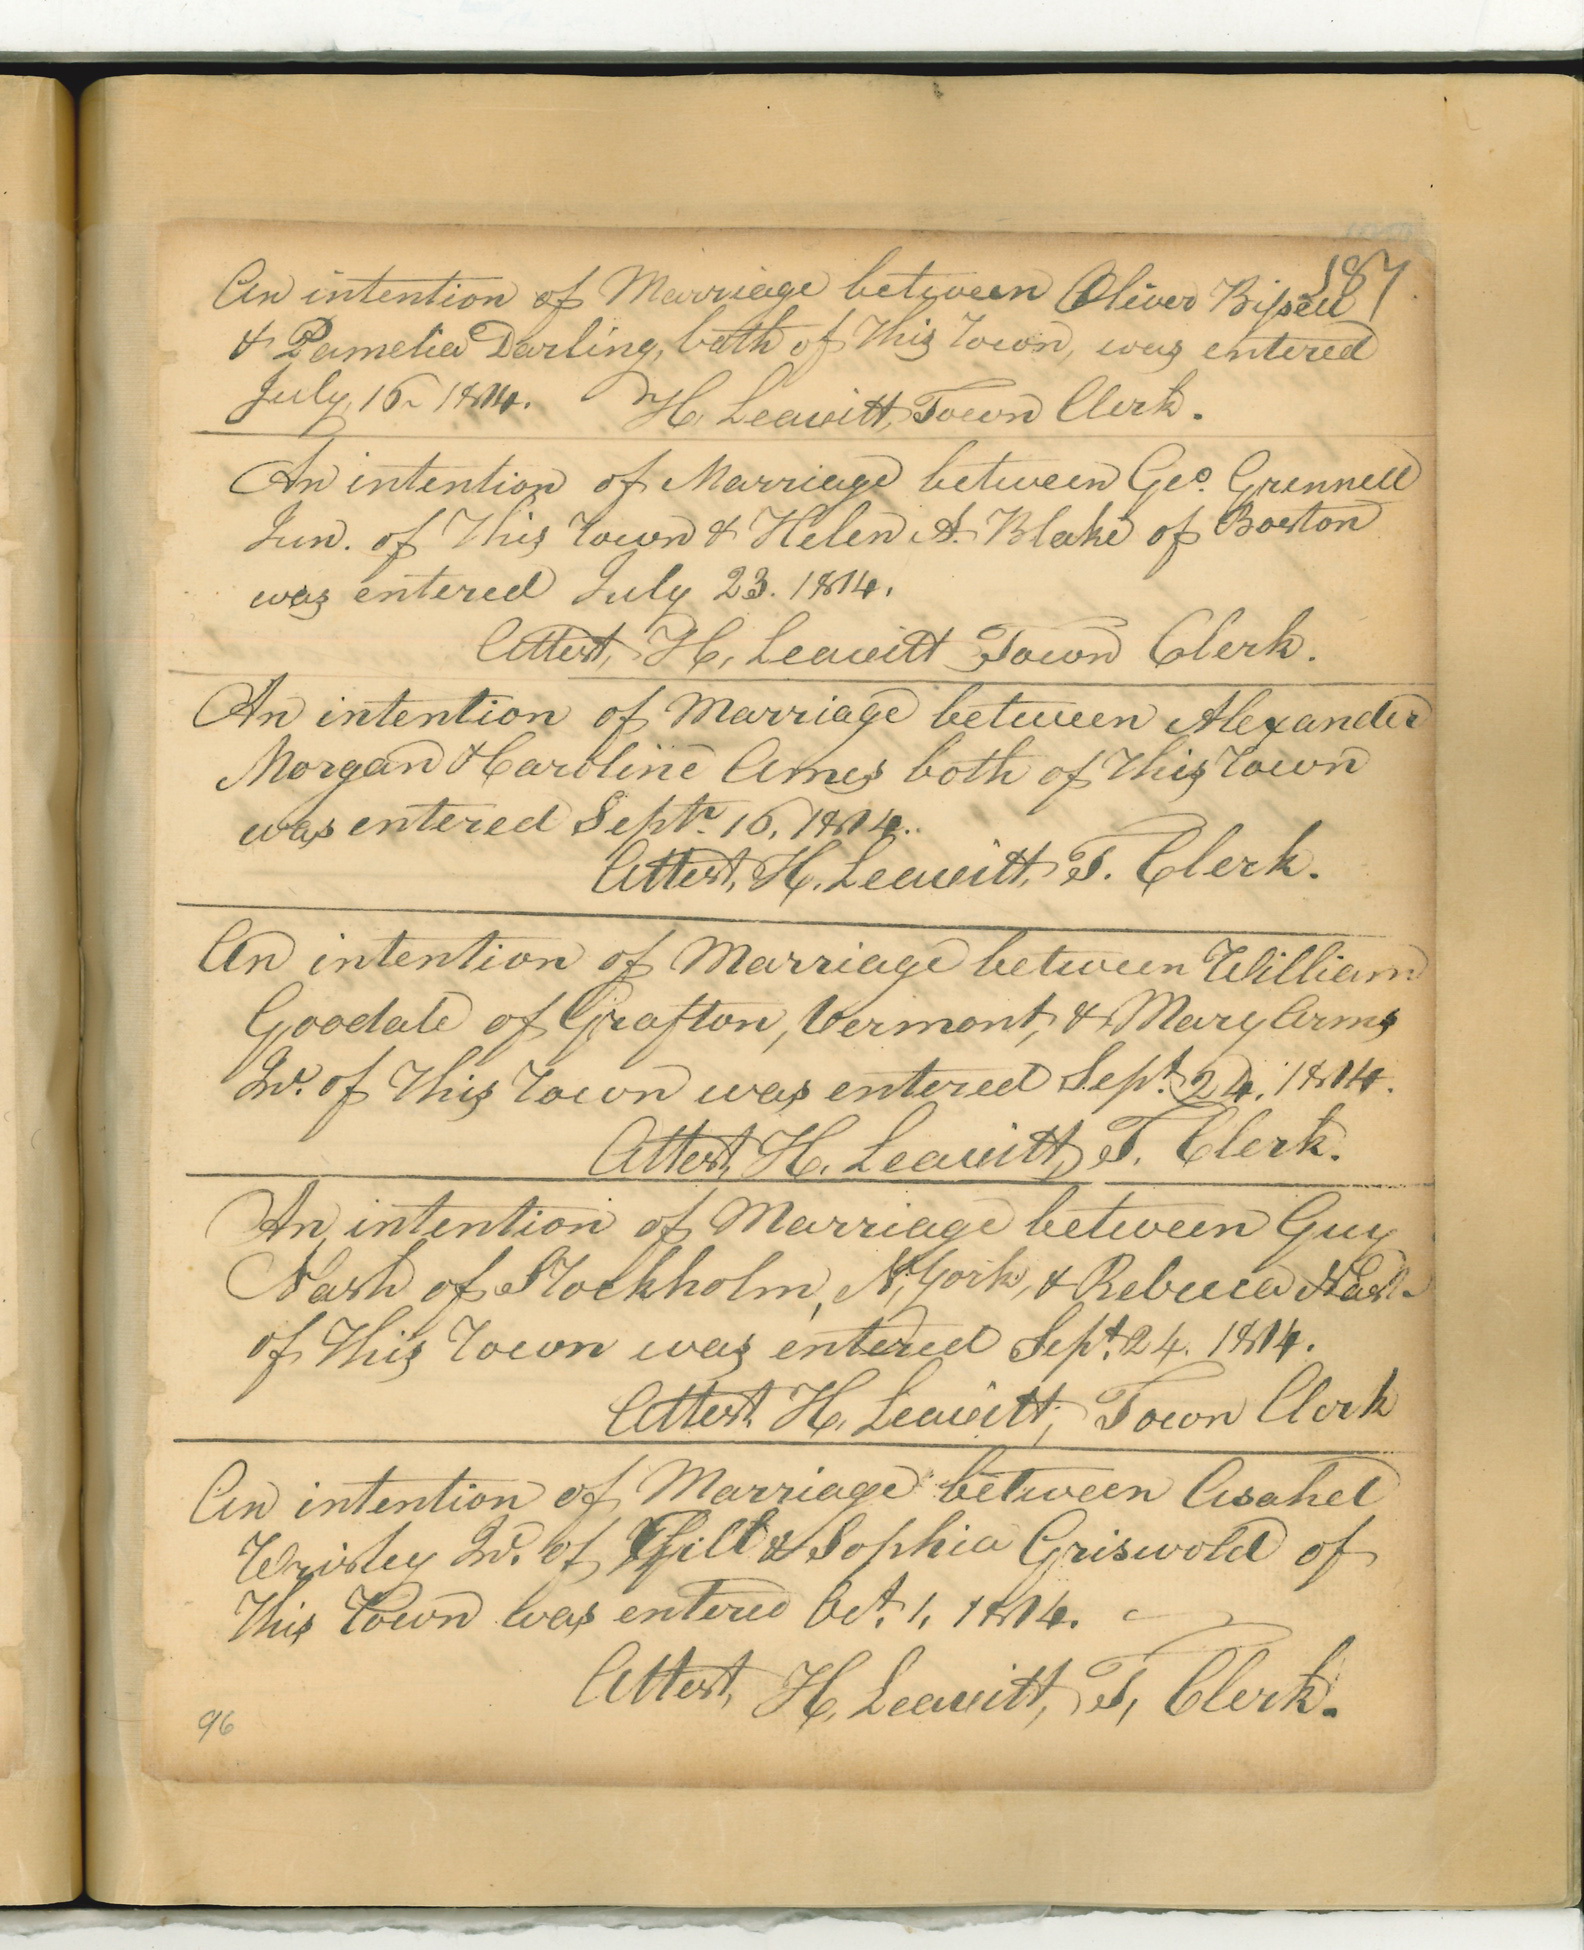 187
An intention of Marriage between Oliver Bissell
& Pamelia Darling, both of this Town, was entered
July 16 1814. H. Leavitt, Town Clerk.
An intention of Marriage between Geo. Grennell
Jun. of this Town & Helen A. Blake of Boston
was entered July 23. 1814.
Attest, H. Leavitt Town Clerk.
An intention of Marriage between Alexander
Morgan & Caroline Ames both of this Town
was entered Septr. 16, 1814.
Attest, H. Leavitt, T. Clerk.
An intention of Marriage between William
Goodale of Grafton, Vermont, & Mary Arms
Jr. of this Town was entered Sept. 24. 1814.
Attest, H. Leavitt, T. Clerk.
An intention of Marriage between Guy
Nash of Stockholm, N, York, & Rebecca Nash
of this Town was entered Sept. 24. 1814.
Attest, H. Leavitt, Town Clerk
An intention of Marriage between Asahel
Wrisley Jr. of Gill & Sophia Griswold of
this Town was entered Oct. 1, 1814.
Attest, H. Leavitt, T, Clerk.
96